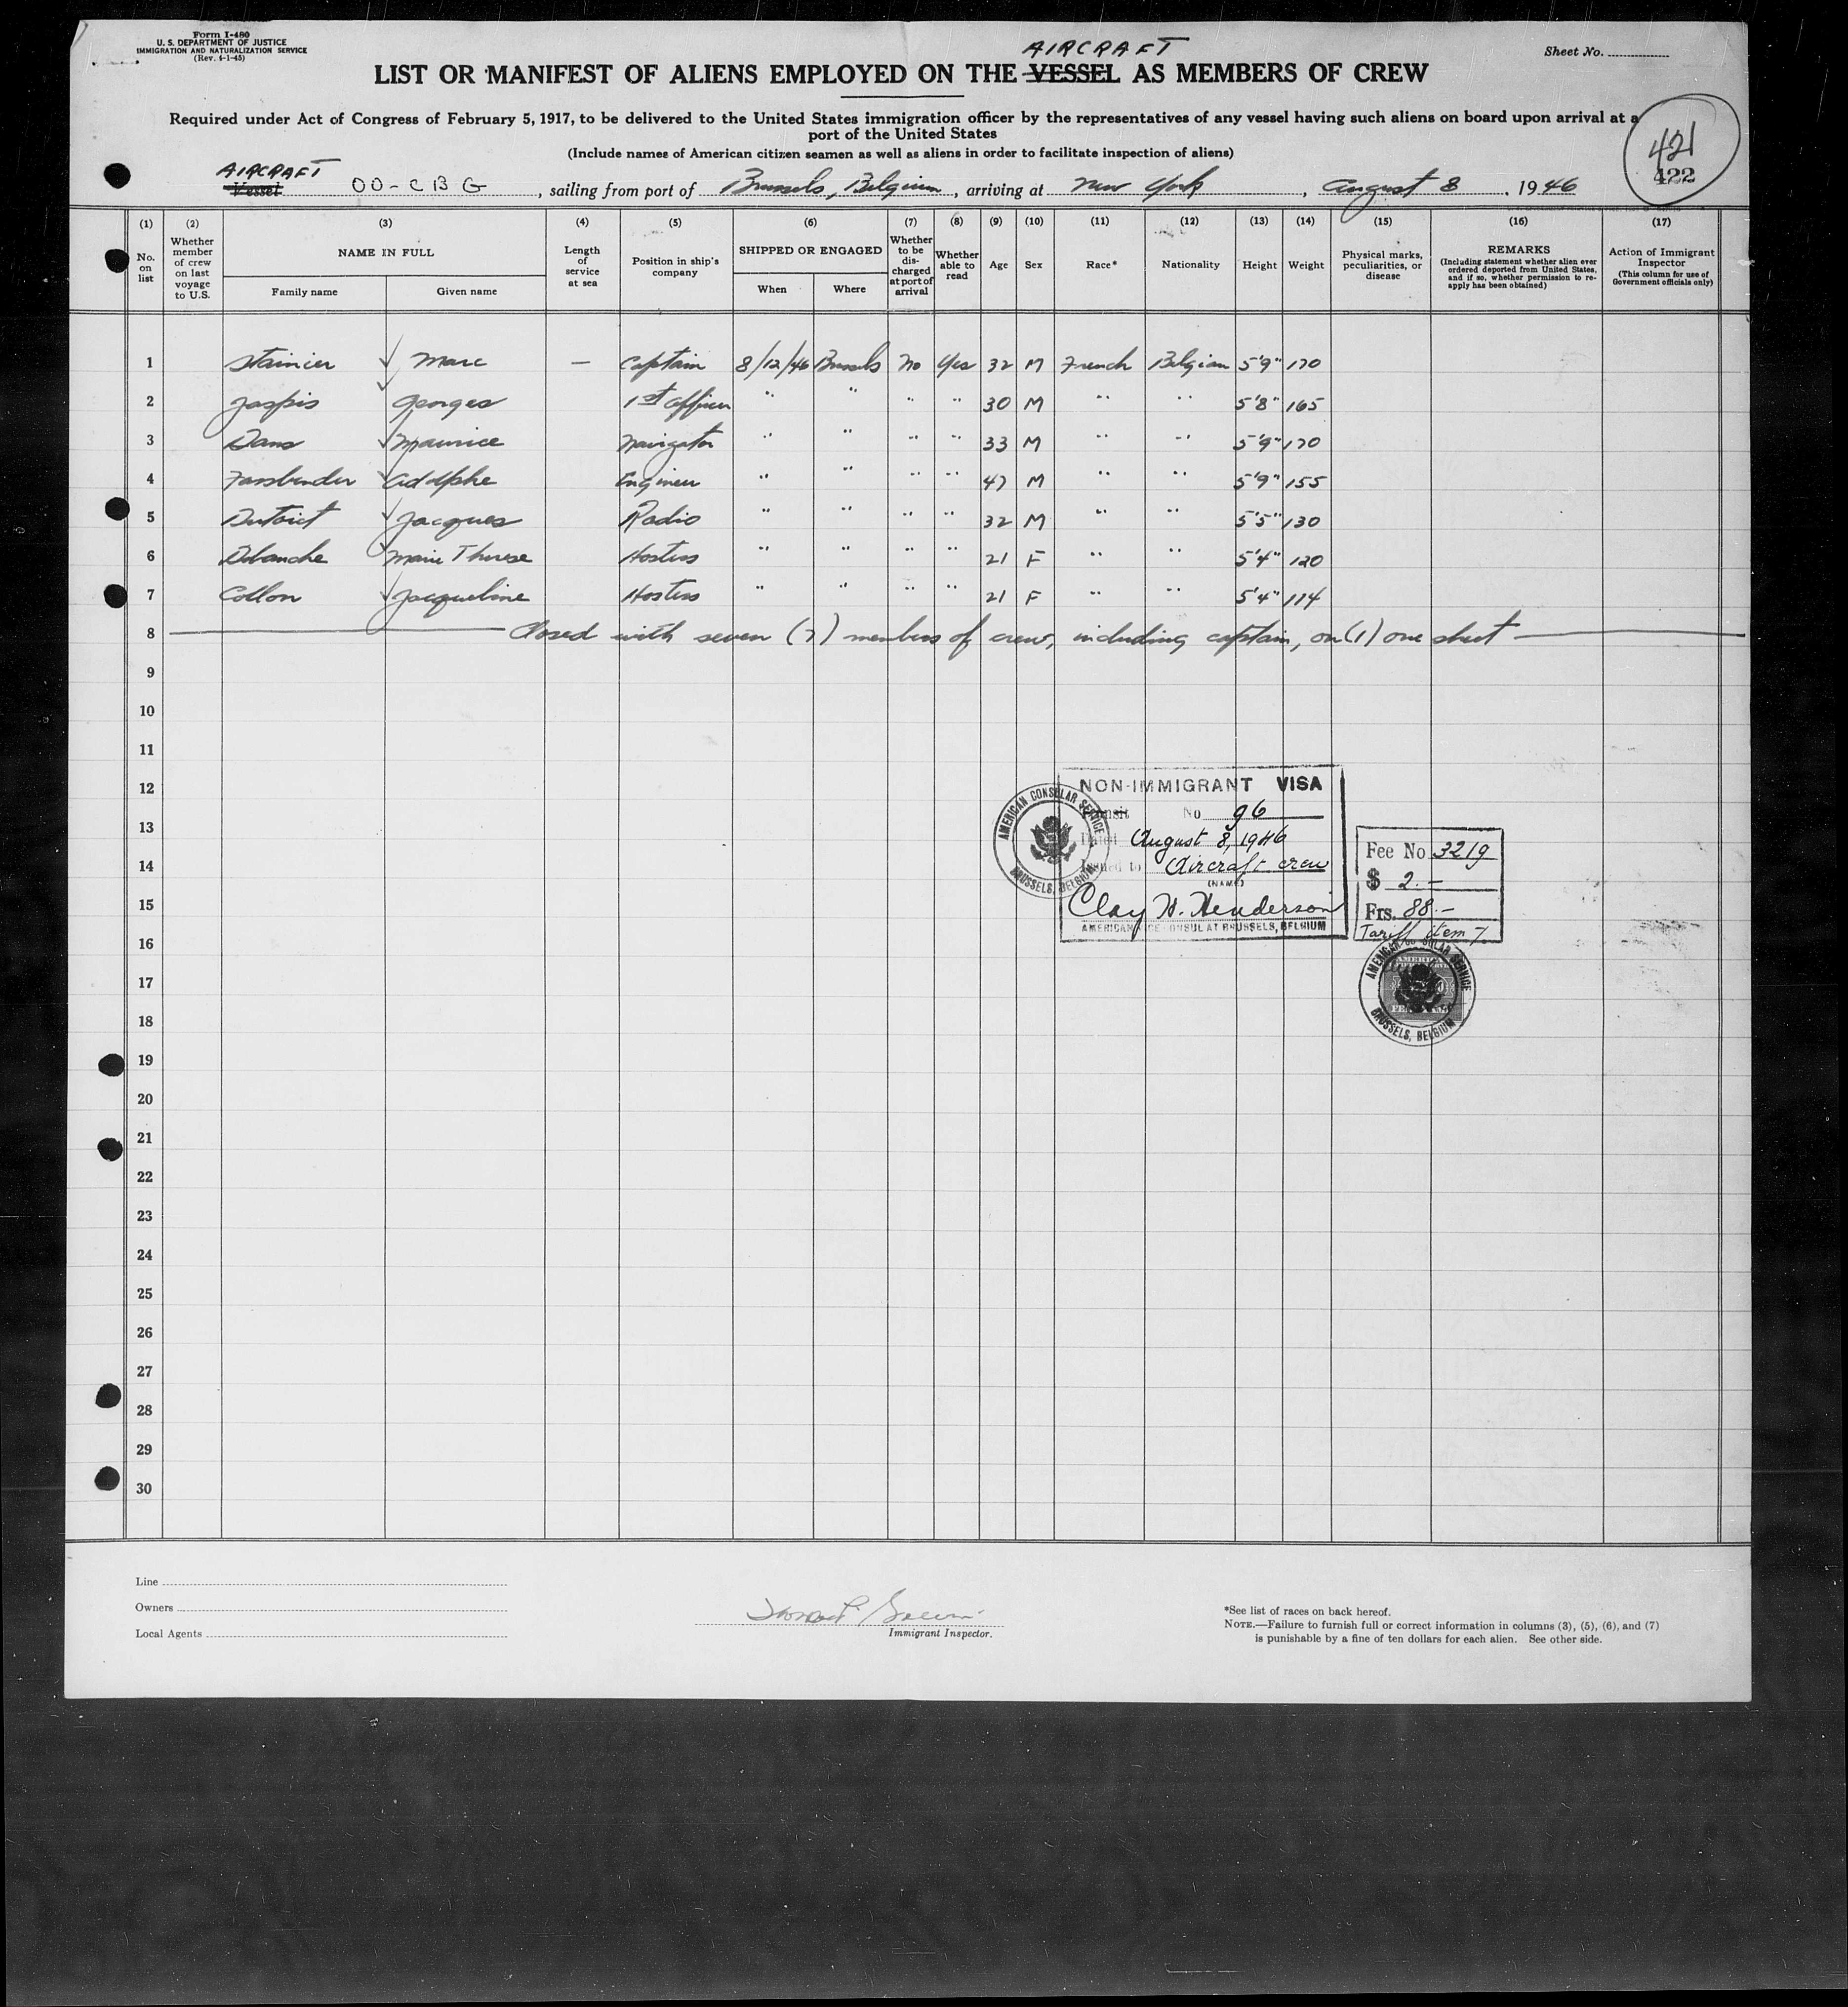 Form I-480
U. S. DEPARTMENT OF JUSTICE
IMMIGRATION AND NATURALIZATION SERVICE
(Rev. 4-1-45)
Sheet No.
AIRCRAFT
LIST OR MANIFEST OF ALIENS EMPLOYED ON THE VESSEL AS MEMBERS OF CREW
Required under Act of Congress of February 5, 1917, to be delivered to the United States immigration officer by the representatives of any vessel having such aliens on board upon arrival at a
port of the United States
(Include names of American citizen seamen as well as aliens in order to facilitate inspection of aliens)
421
422
AIRCRAFT
Vessel OO-CBG, sailing from port of Brussels, Belgium, arriving at New York, August 8, 1946
(1) (2) (3) (4) (5) (6) (7) (8) (9) (10) (11) (12) (13) (14) (15) (16) (17)
No. on list
Whether member of crew on last voyage to U.S.
NAME IN FULL
Family name
Given name
Length of service at sea
Position in ship's company
SHIPPED OR ENGAGED
When
Where
Whether to be discharged at port of arrival
Whether able to read
Age
Sex
Race*
Nationality
Height
Weight
Physical marks, peculiarities, or disease
REMARKS
(Including statement whether alien ever ordered deported from United States, and if so, whether permission to reapply has been obtained)
Action of Immigrant Inspector
(This column for use of Government officials only)
1 Stainier Marc — Captain 8/12/46 Brussels No Yes 32 M French Belgian 5'9" 170
2 Jaspis Georges 1st Officer " " " " 30 M " " 5'8" 165
3 Dans Maurice Navigator " " " " 33 M " " 5'9" 170
4 Fassbender Adolphe Engineer " " " " 47 M " " 5'9" 155
5 Dutoict Jacques Radio " " " " 32 M " " 5'5" 130
6 Debanche Marie Therese Hostess " " " " 21 F " " 5'4" 120
7 Collon Jacqueline Hostess " " " " 21 F " " 5'4" 114
8 Closed with seven (7) members of crew, including captain, on (1) one sheet
9
10
11
12
13
14
15
16
17
18
19
20
21
22
23
24
25
26
27
28
29
30
NON-IMMIGRANT VISA
Transit No 96
Dated August 8, 1946
Issued to Aircraft crew
(NAME)
Clay W. Henderson
AMERICAN VICE CONSUL AT BRUSSELS, BELGIUM
AMERICAN CONSULAR SERVICE
BRUSSELS, BELGIUM
Fee No 3219
$ 2.-
Frs. 88.-
Tariff item 7
AMERICAN CONSULAR SERVICE
BRUSSELS, BELGIUM
Line
Owners
Local Agents
Immigrant Inspector.
*See list of races on back hereof.
NOTE.—Failure to furnish full or correct information in columns (3), (5), (6), and (7)
is punishable by a fine of ten dollars for each alien. See other side.